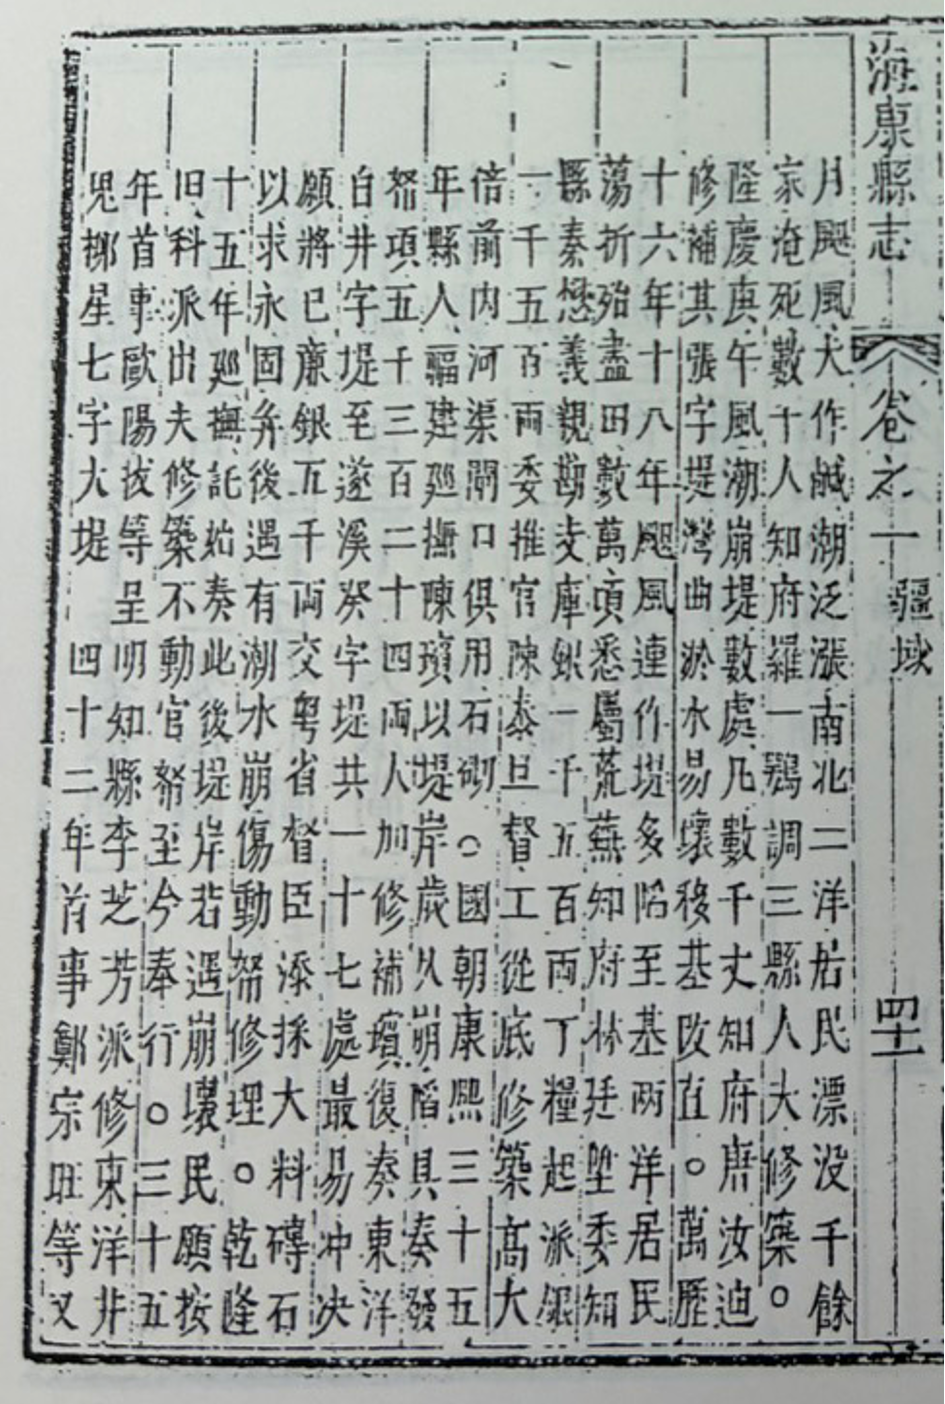 海康縣志 卷之一 疆域 四十一
月颶風大作鹹潮泛漲南北二洋居民漂没千餘
家淹死數千人知府羅一鶚調三縣人大修築○
隆慶庚午風潮崩堤數處凡數千丈知府唐汝迪
修補其張字堤灣曲淤水易壞移基改直○萬歷
十六年十八年颶風連作堤多陷至基兩洋居民
蕩折殆盡田數萬頃悉屬荒蕪知府林廷陞委知
縣秦懋義親勘支庫銀一千五百兩丁糧起派銀
一千五百兩委推官陳泰旦督工從底修築高大
倍前内河渠閘口俱用石砌○國朝康熙三十五
年縣人福建廵撫陳璸以堤岸歲久崩陷具奏發
帑項五千三百二十四兩人加修補璸復奏東洋
白井字堤至遂溪癸字堤共一十七處最易冲决
願將已廉銀五千兩交粤省督臣添採大料磚石
以求永固并後遇有潮水崩傷動帑修理○乾隆
十五年廵撫託始奏此後堤岸若遇崩壞民願按
旧科派出夫修築不動官帑至今奉行○三十五
年首事歐陽拔等呈明知縣李芝芳派修東洋井
鬼柳星七字大堤 四十二年首事鄭宗旺等又